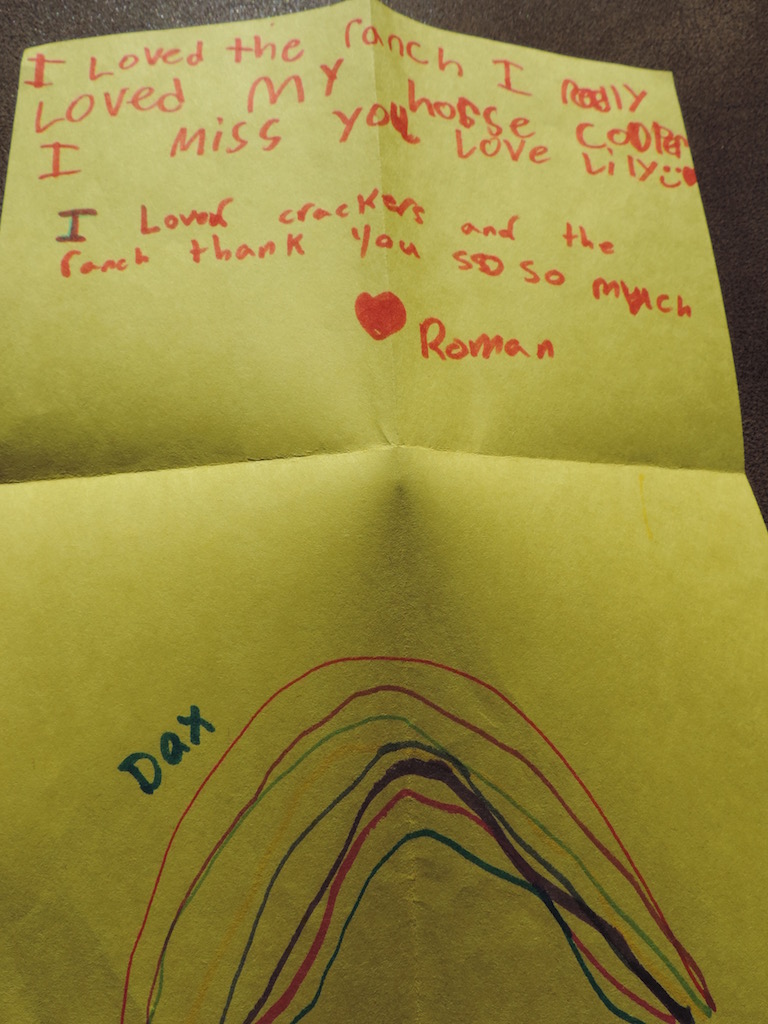 I Loved the ranch I Really
Loved My horse COOPER
I Miss you Love Lily
I Loved crackers and the
ranch thank you so so much
Roman
Dax